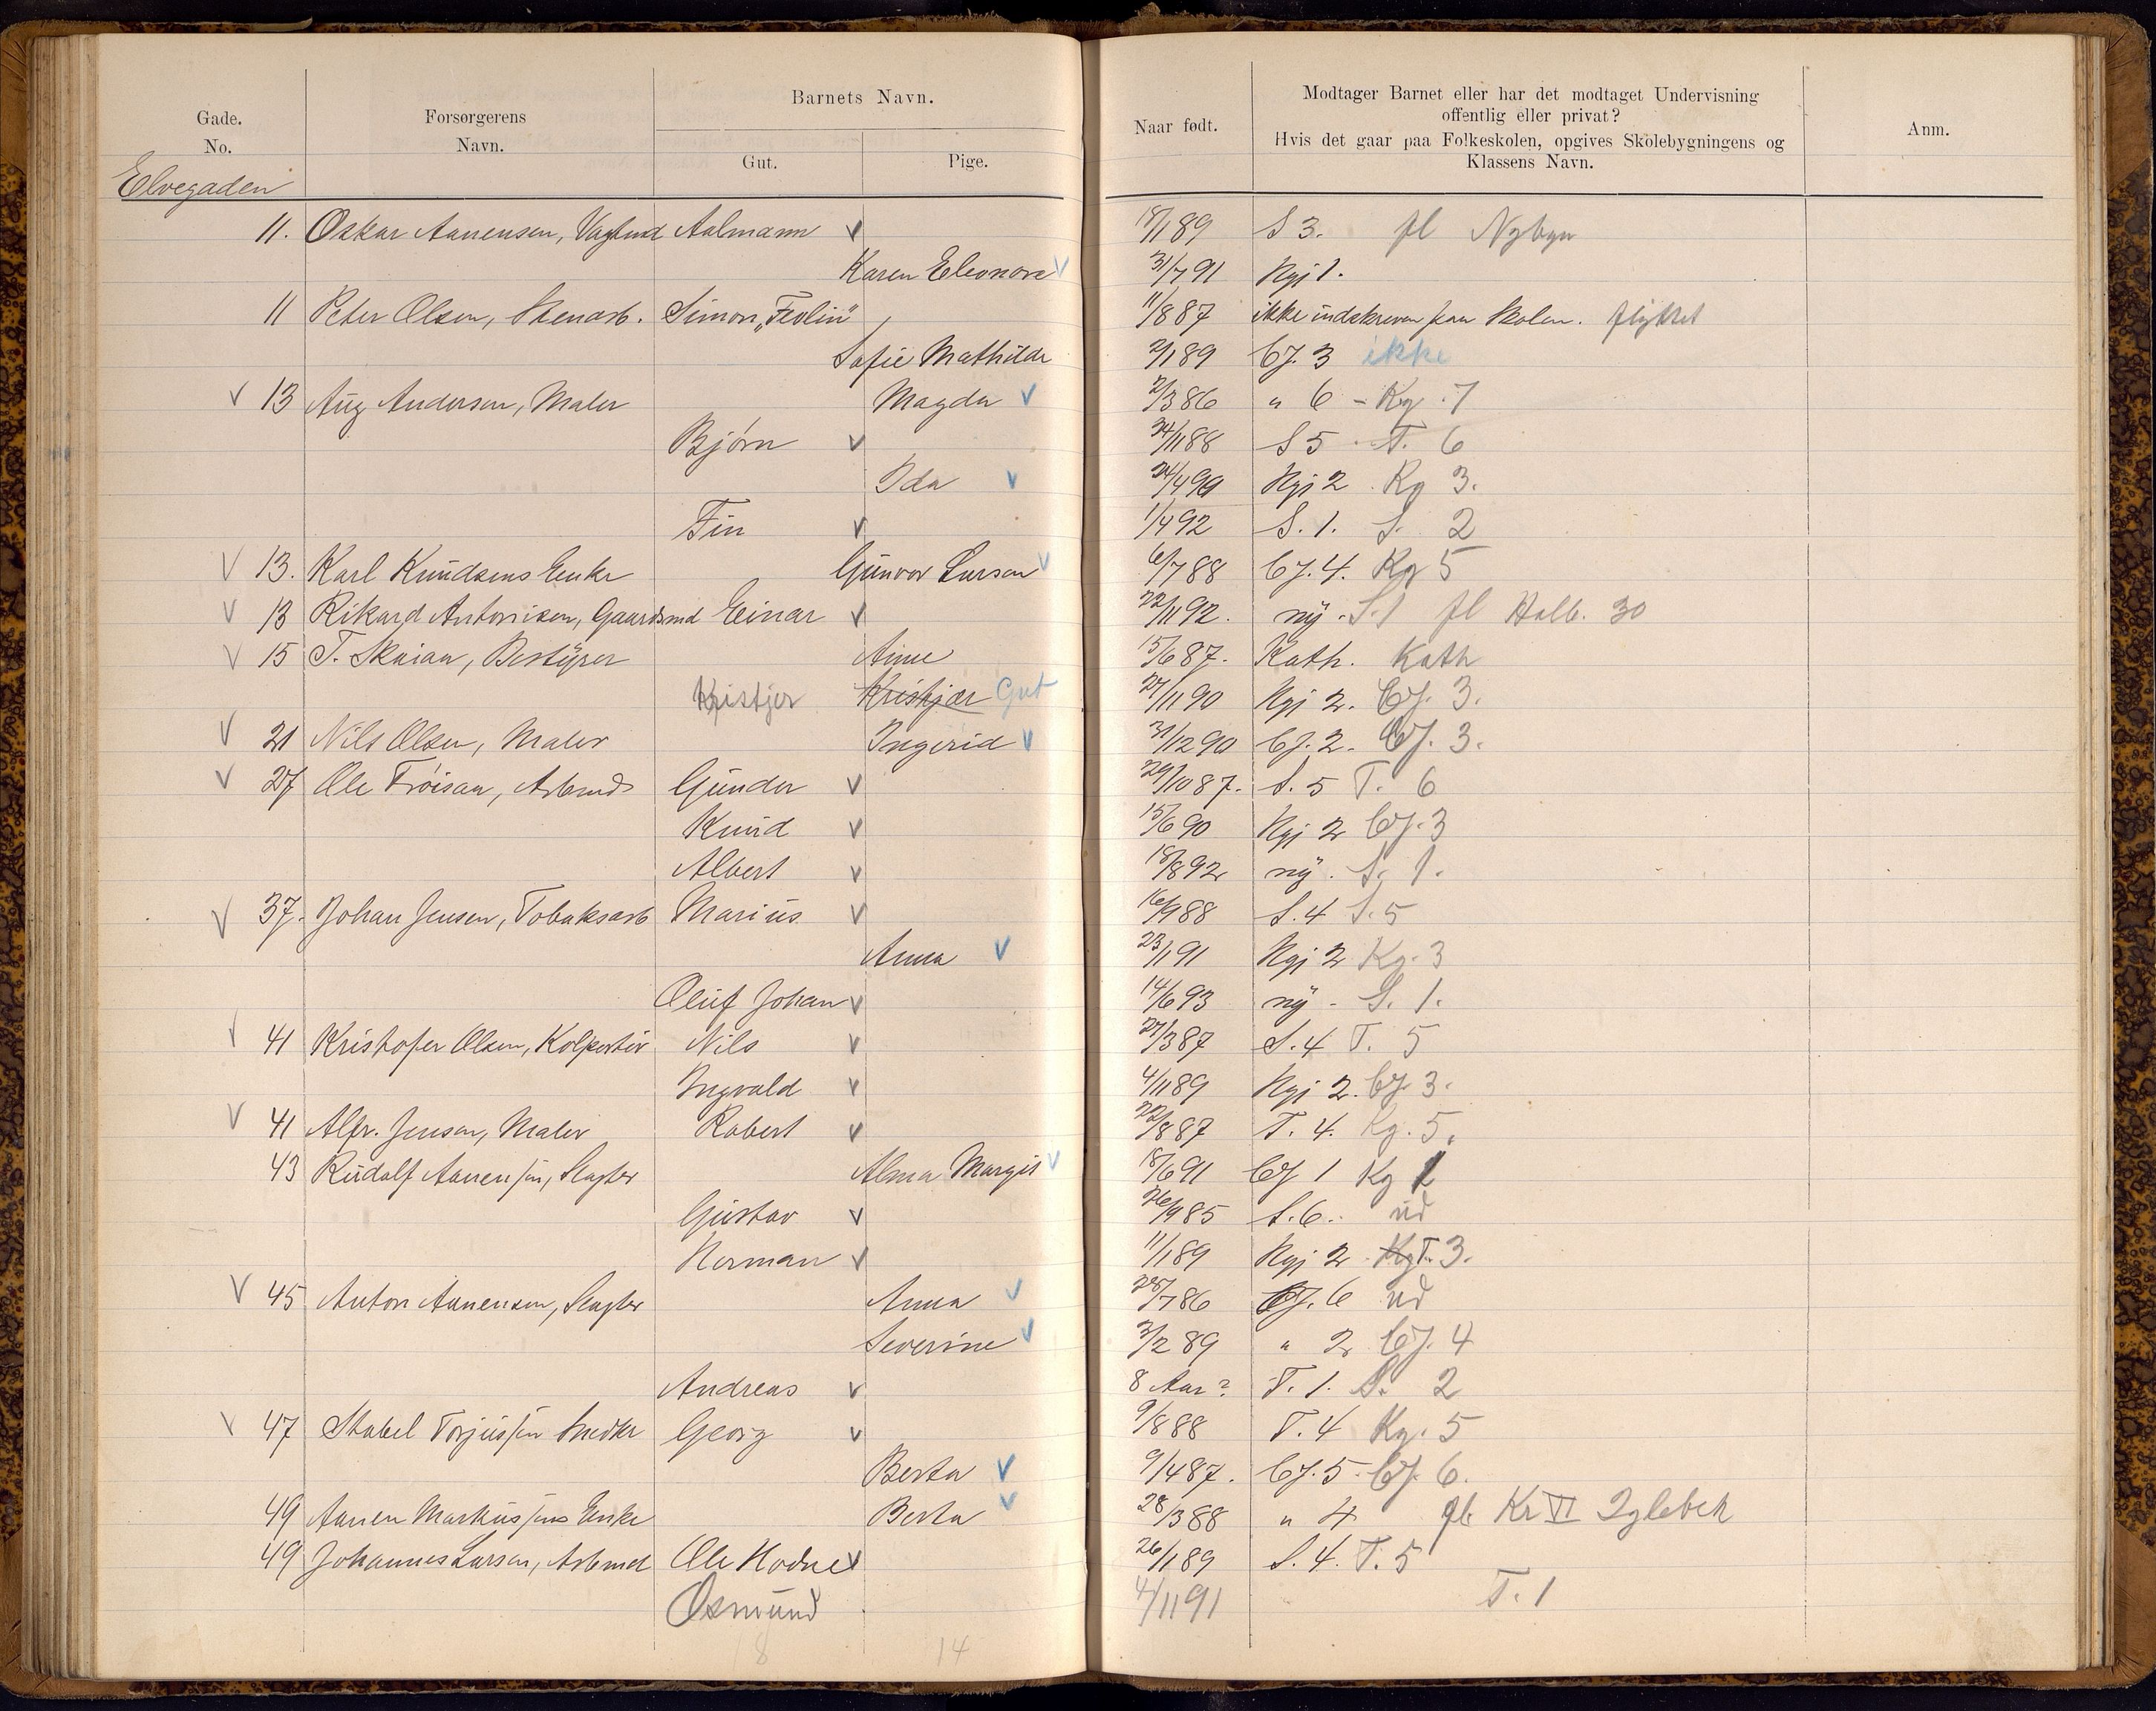 Gade.
No.
Forsørgerens
Navn.
Barnets Navn.
Gut.
Pige.
Naar født.
Modtager Barnet eller har det modtaget Undervisning
offentlig eller privat?
Hvis det gaar paa Folkeskolen, opgives Skolebygningens og
Klassens Navn.
Anm.
Elvegaden
11. Oskar Aanensen, Aalmann 18/1 89 S 3. fl Nybyn
Karen Eleonore 31/7 91 Ngj 1.
11 Peter Olsen, Stenarb. Simon „Feolin" 11/8 87 ikke indskreven paa Skolen. flyttet
Sofie Mathilde 2/1 89 Bj. 3 ikke
13 Aug Andersen, Maler Magda 2/3 86 " 6 - Kg 7
Bjørn 24/11 88 S 5 T. 6
Ida 24/4 90 Ngj 2 Kg 3.
Fin 1/4 92 S. 1. S. 2
13. Karl Knudsens Enke Gunvor Larsen 6/7 88 Bj. 4. Kg 5
13 Rikard Antonisen, Gaardsmd Einar 22/11 92. ny - S. 1 fl Holb. 30
15 T. Skaian, Bestyrer Aime 15/6 87. Kath. Kath
Kristjer Kristjær Gut 27/11 90 Ngj 2. Bj. 3.
21 Nils Olsen, Maler Ingerid 31/12 90 Bj. 2. Bj. 3.
27 Ole Trøisaa, Arbmd Gunder 29/10 87. S. 5 T. 6
Knud 15/6 90 Ngj 2 Bj. 3
Albert 18/8 92 ny. S. 1.
37. Johan Jensen, Tobaksarb Marius 16/9 88 S. 4 S. 5
Anna 23/1 91 Ngj 2 Kg. 3
Oluf Johan 14/6 93 ny - S. 1.
41 Kristofer Olsen, Kolportør Nils 27/3 87 S. 4 T. 5
Ingvald 4/11 89 Ngj 2. Bj. 3.
41 Alfr. Jensen, Maler Robert 22/8 87 T. 4. Kg. 5.
43 Rudolf Aanensen, Slagter Alma Margit 18/6 91 Bj 1 Kg 2
Gustav 26/9 85 S. 6. ud
Herman 11/1 89 Ngj 2 Kg T. 3.
45 Anton Aanensen, Slagter Anna 28/7 86 Bj. 6 ud
Severine 3/2 89 " 2 Bj. 4
Andreas 8 Aar? T. 1. S. 2
47 Stabel Torjussen Snedker Georg 9/8 88 T. 4 Kg. 5
Berta 9/4 87. Bj. 5. Bj. 6.
49 Aanen Markussens Enke Berta 28/3 88 " 4 fl. Kr VI Iglebek
49 Johannes Larsen, Arbmd Ole Hodne 26/1 89 S. 4. T. 5
Osmund 4/11 91 T. 1
18 14